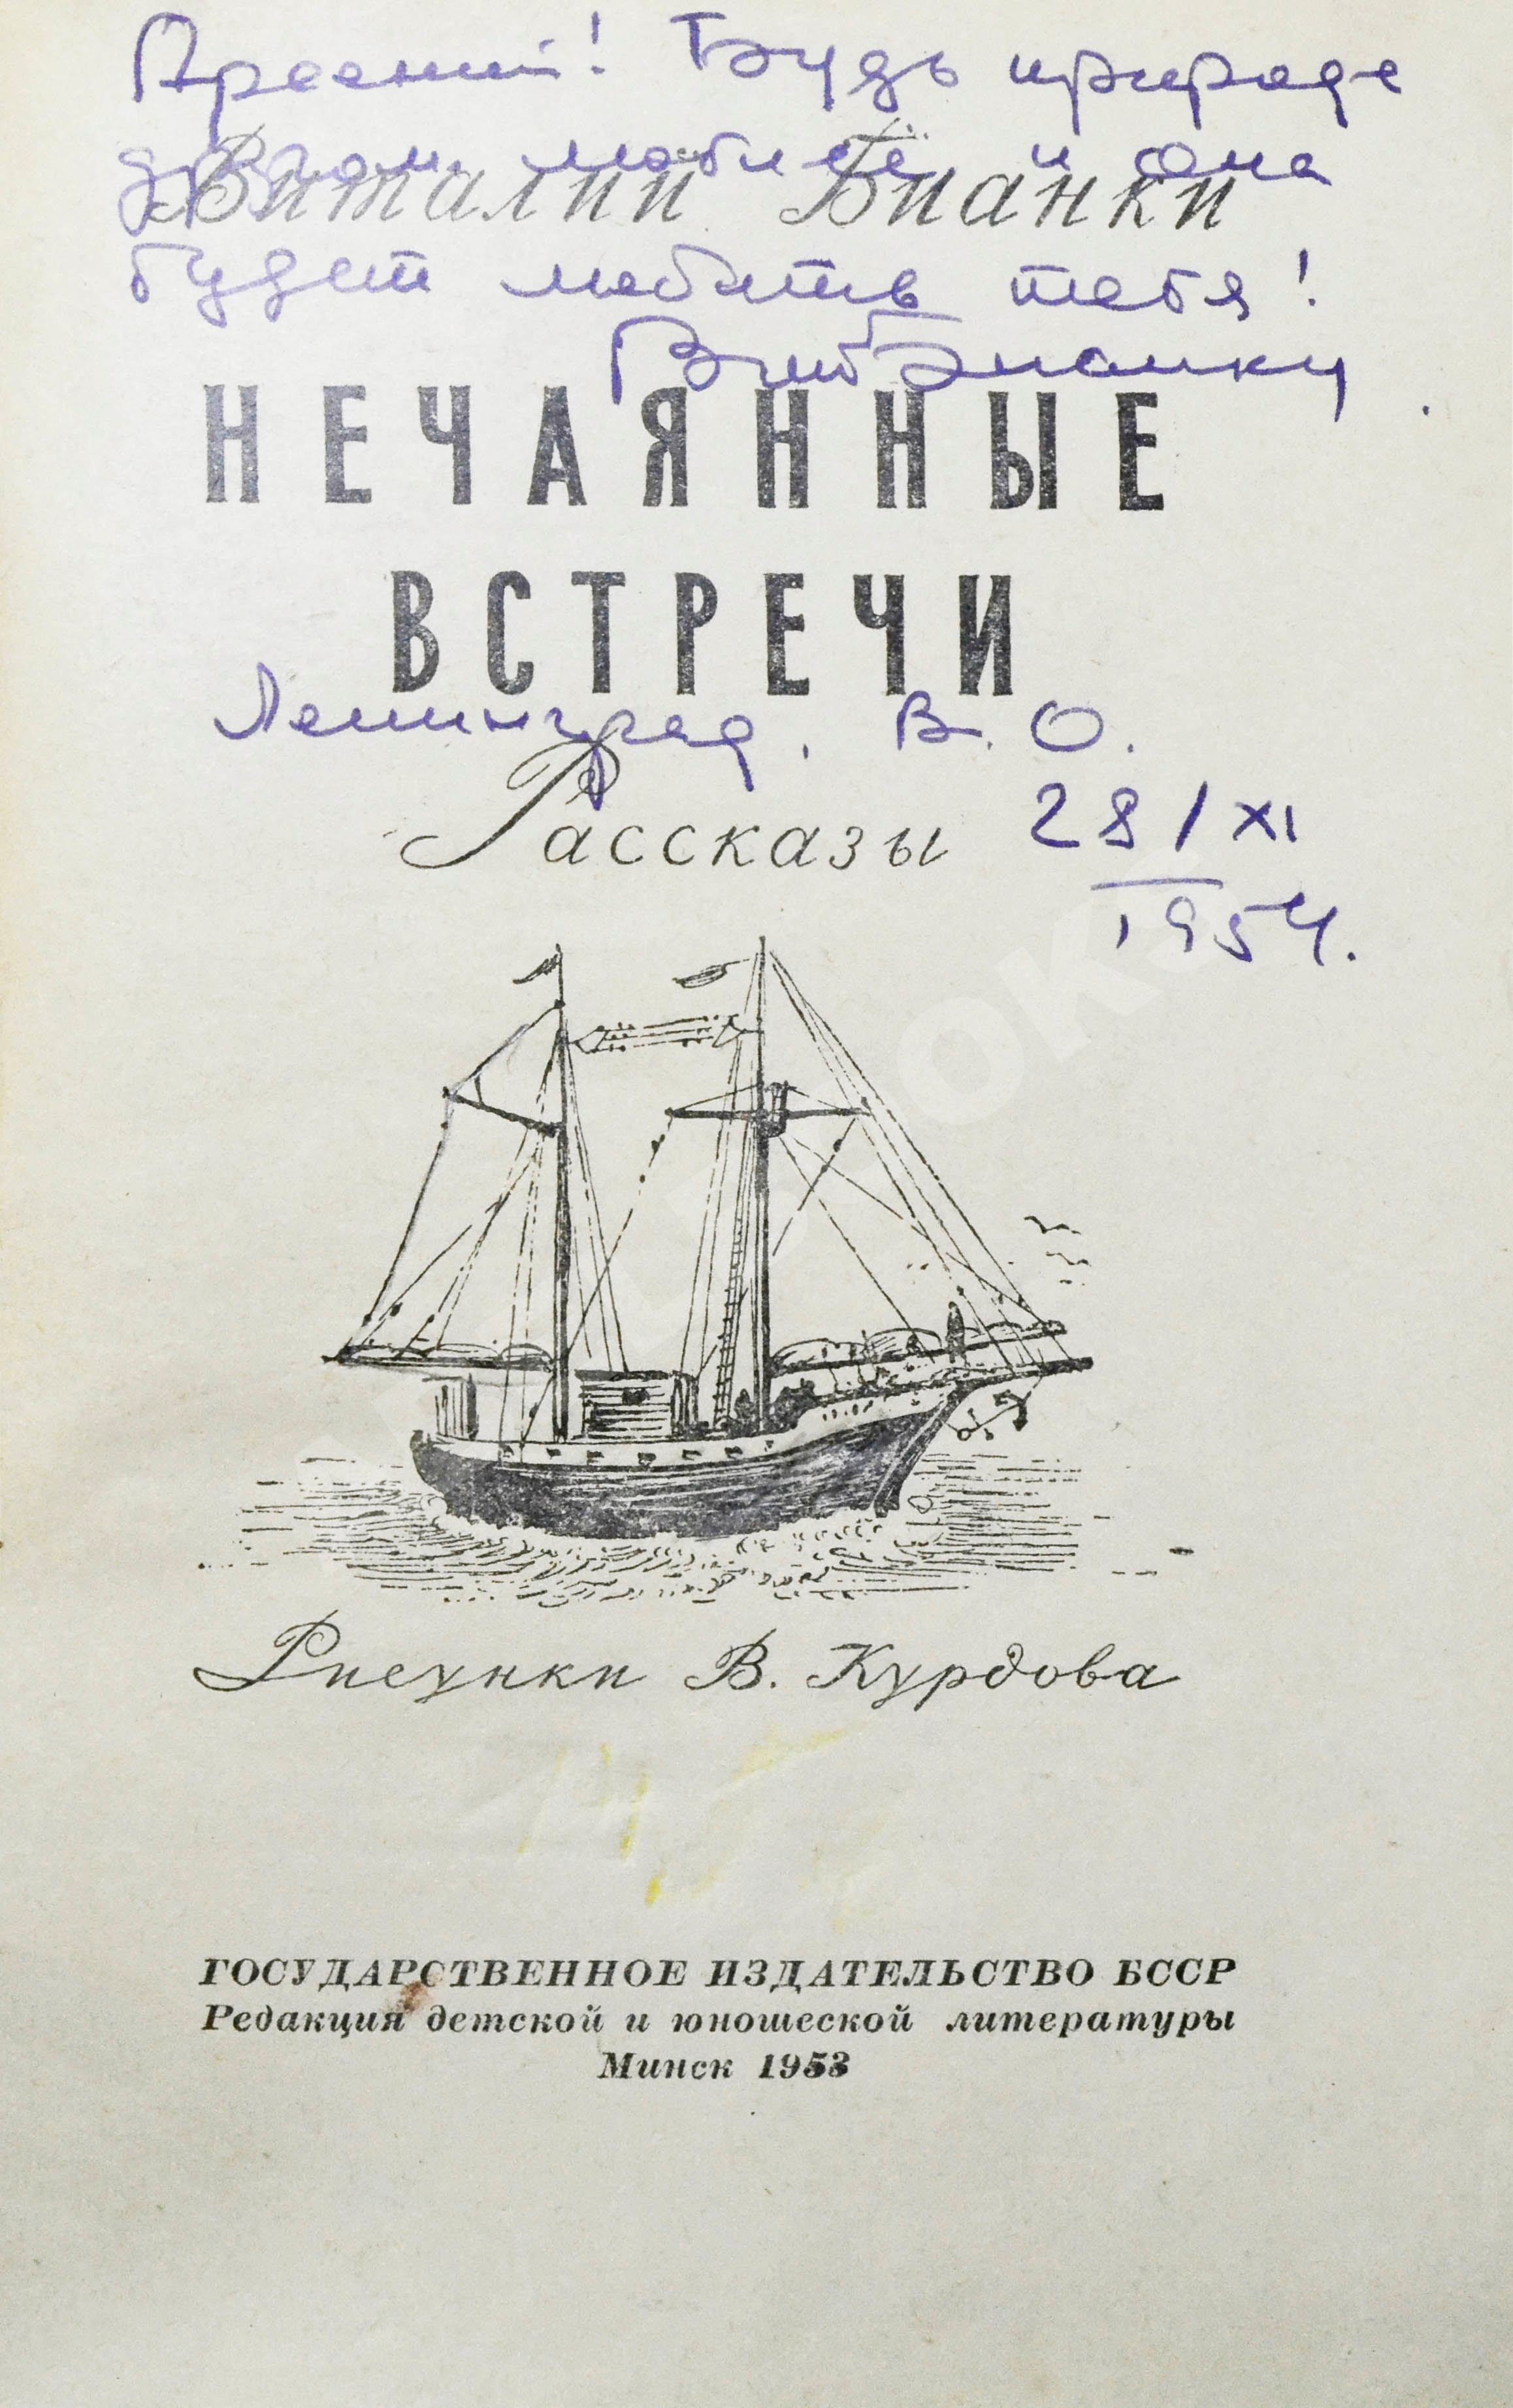 Арсений! Будь природе
другом, люби её и она
Виталий Бианки
будет любить тебя!
Вит Бианки
НЕЧАЯННЫЕ
ВСТРЕЧИ
Ленинград. В. О.
Рассказы
28/XI
1954.
Рисунки В. Курдова
ГОСУДАРСТВЕННОЕ ИЗДАТЕЛЬСТВО БССР
Редакция детской и юношеской литературы
Минск 1953